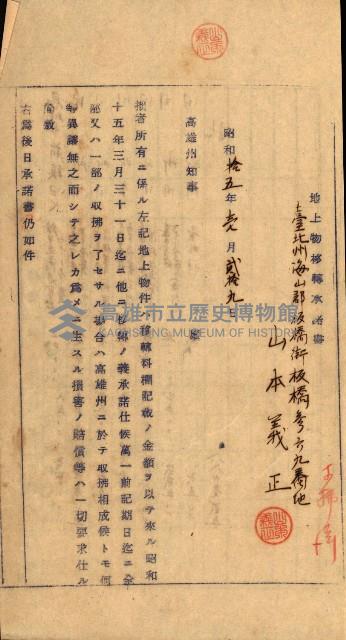 地上物移轉承諾書
臺北州海山郡板橋街板橋參六九番地
山本義正
昭和拾五年壱月貳拾九日
高雄州知事 殿
拙者所有ニ係ル左記地上物件ハ移轉料欄記載ノ金額ヲ以テ來ル昭和
十五年三月三十一日迄ニ他ニ移轉ノ義承諾仕候萬一前記期日迄ニ全
部又ハ一部ノ收拂ヲ了セサル場合ハ高雄州ニ於テ收拂相成候トモ何
等異議無之而シテ之レカ爲メニ生スル損害ノ賠償等ハ一切要求仕ル
間敷
右爲後日承諾書仍如件
高雄市立歷史博物館
KAOHSIUNG MUSEUM OF HISTORY